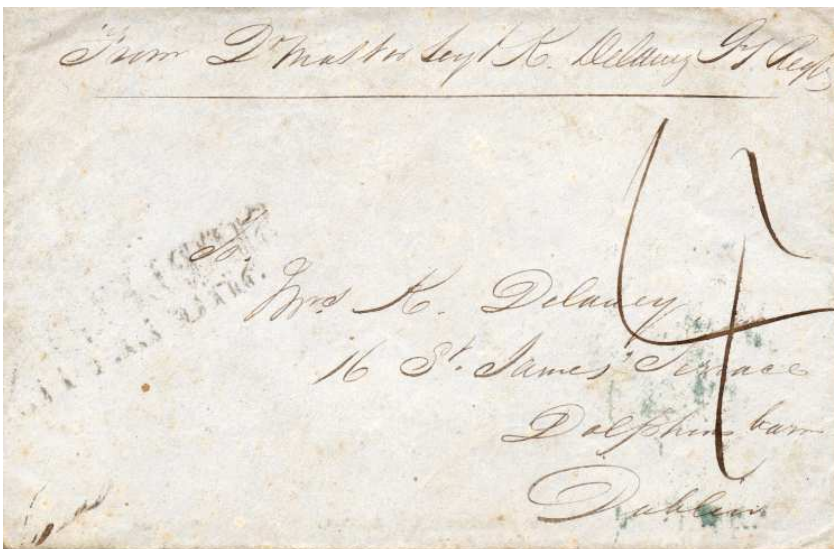 From Dr Master Sergt K. Delany Regt
4
To.
Mrs K. Delaney
16 St. James' Terrace
Dolphins barn
Dublin